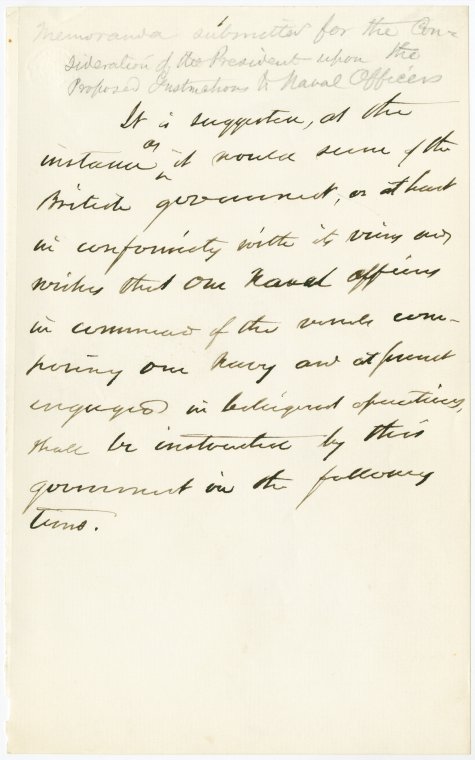 Memoranda submitted for the Con=
sideration of the President upon the
Proposed Instructions to Naval Officers
It is suggested, at the
as
instance it would seem of the
British government, or at least
in conformity with its views and
wishes that our Naval officers
in command of the vessels com-
posing our Navy and at present
engaged in beligerent operations,
shall be instructed by this
government in the following
terms.